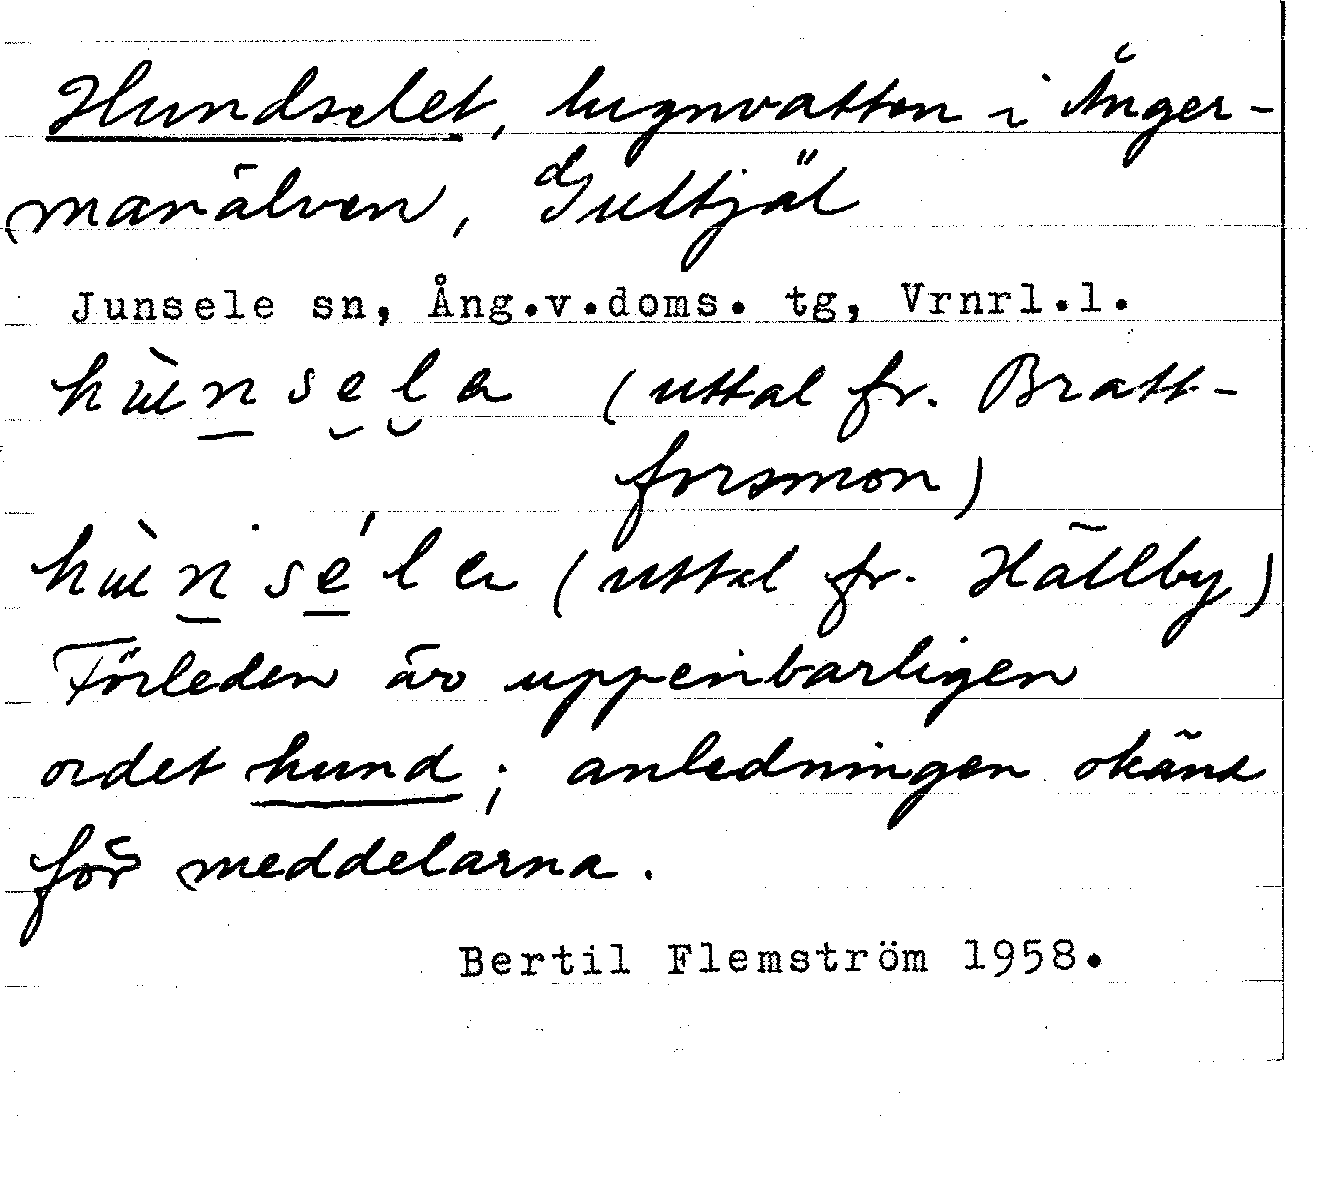 Hundselet, lugnvatten i Ånger-
manälven, Gulltjäl
Junsele sn, Ång.v.doms. tg, Vrnrl.l.
hùnsela (uttal fr. Bratt-
forsmon)
hùnséla (uttal fr. Hällby)
Förleden är uppenbarligen
ordet hund; anledningen okänd
för meddelarna.
Bertil Flemström 1958.